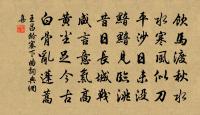 飲馬渡秋水
水寒風似刀
平沙日未没
黯黯見臨洮
昔日長城戰
咸言意氣高
黄塵足今古
白骨亂蓬蒿
王昌齡塞下曲詞典網
集